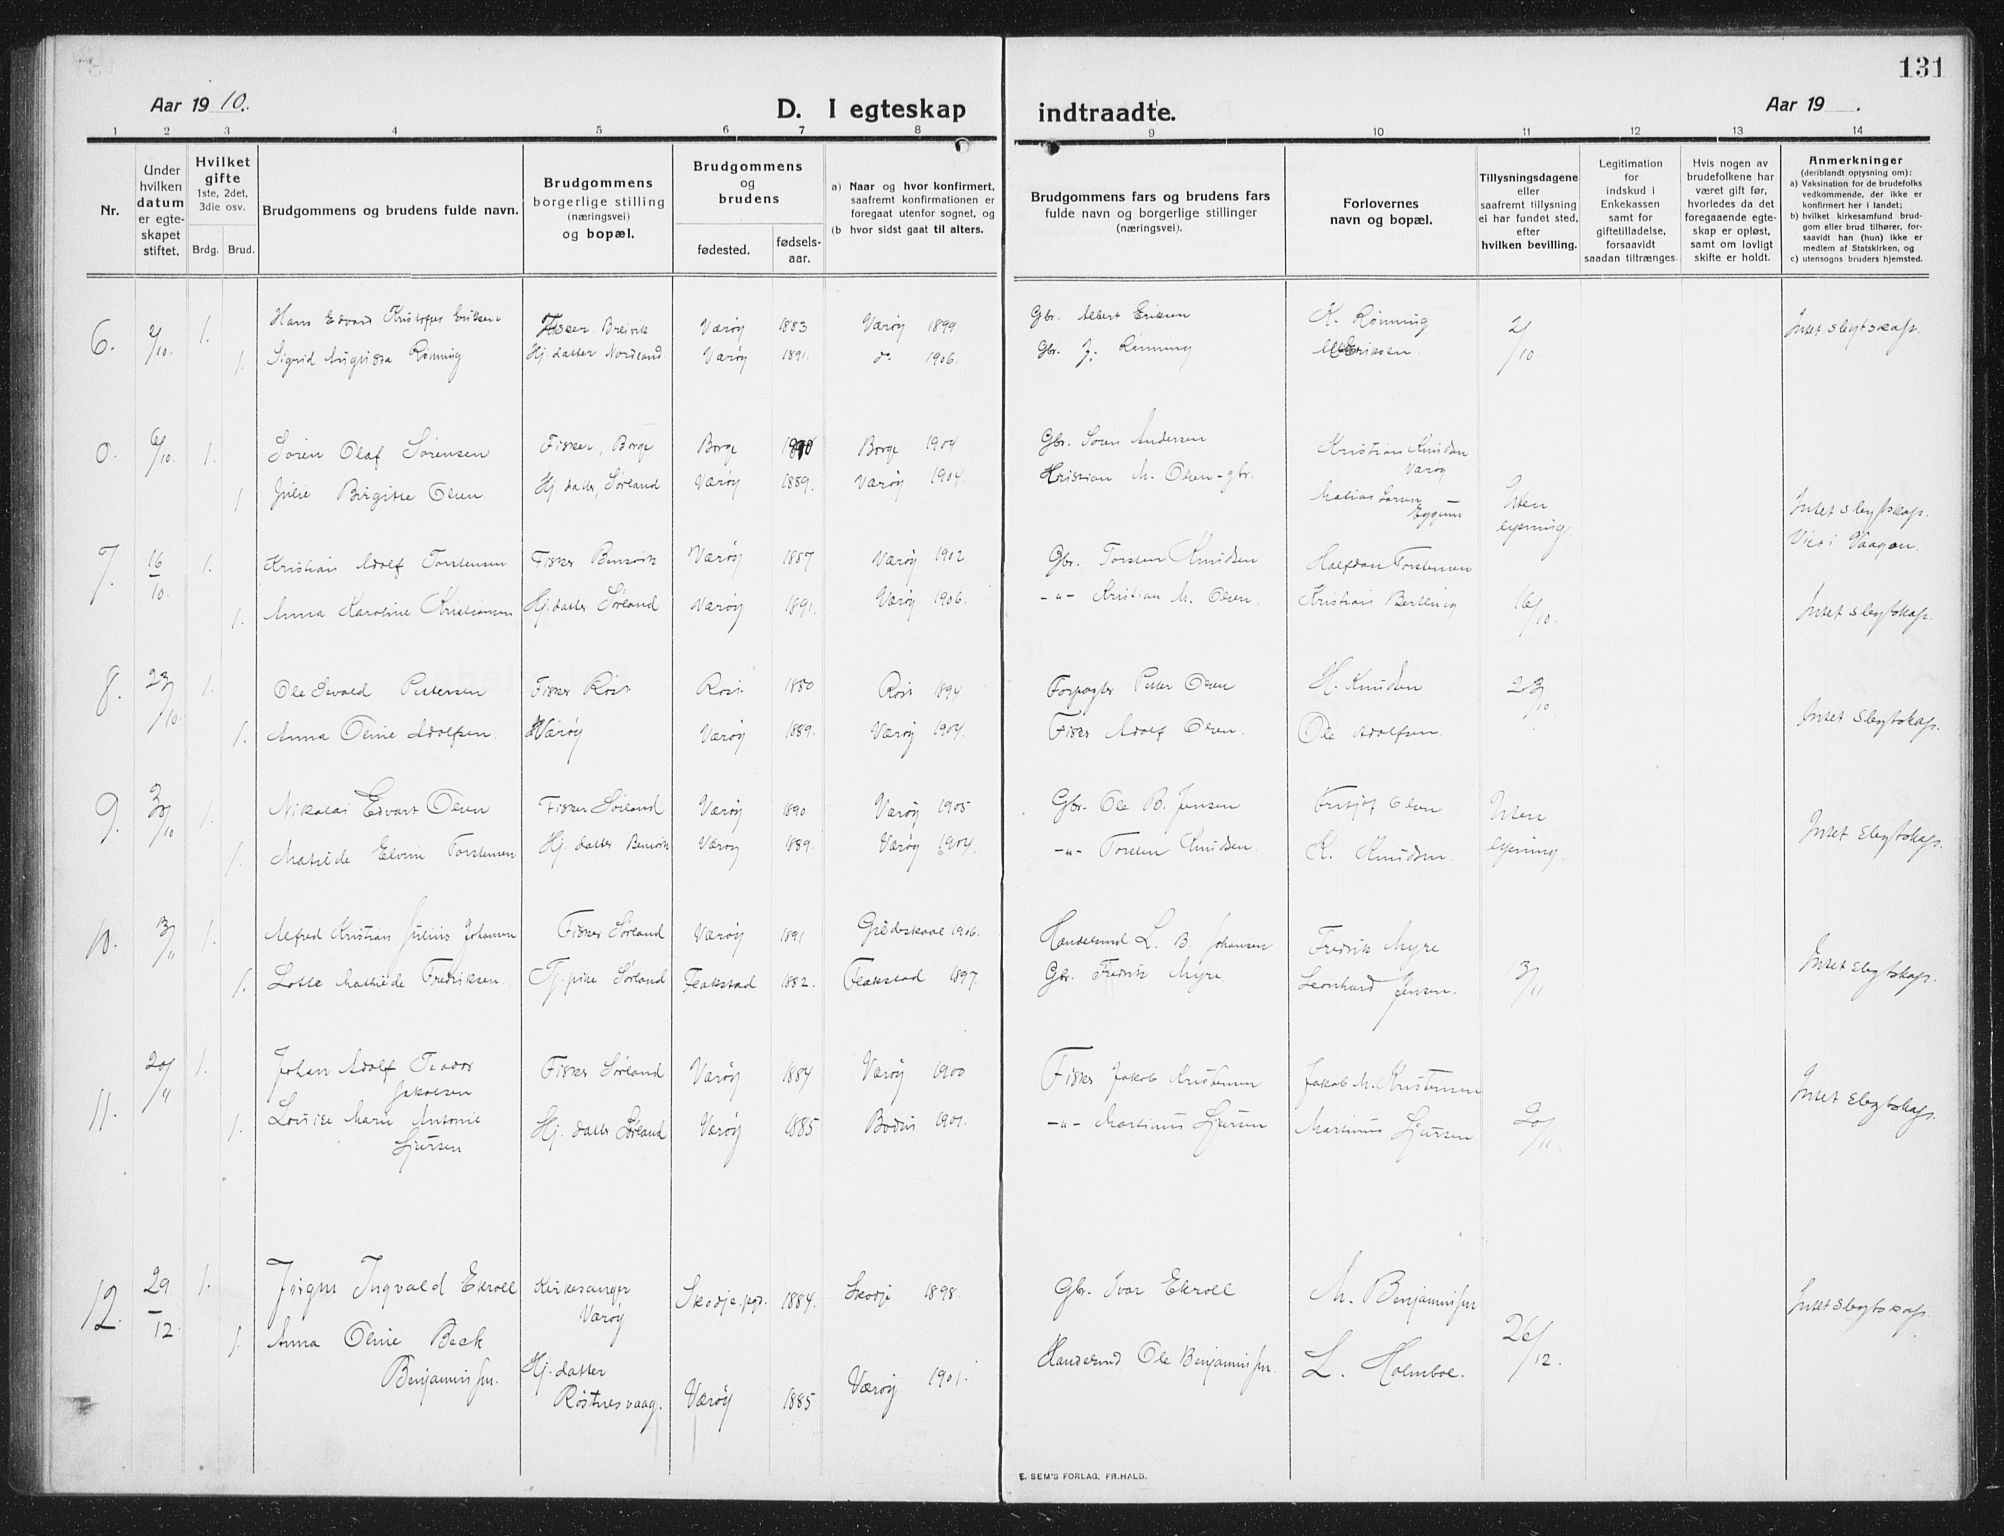 131
Aar 19 10.
D. I egteskap indtraadte.
Aar 19 .
1 2 3 4 5 6 7 8 9 10 11 12 13 14
Nr.
Under hvilken datum er egte-skapet stiftet.
Hvilket gifte
1ste, 2det, 3die osv.
Brdg. Brud.
Brudgommens og brudens fulde navn.
Brudgommens borgerlige stilling (næringsvei) og bopæl.
Brudgommens og brudens
fødested. fødsels-aar.
a) Naar og hvor konfirmert, saafremt konfirmationen er foregaat utenfor sognet, og
(b hvor sidst gaat til alters.
Brudgommens fars og brudens fars fulde navn og borgerlige stillinger (næringsvei).
Forlovernes navn og bopæl.
Tillysningsdagene eller saafremt tillysning ei har fundet sted, efter hvilken bevilling.
Legitimation for indskud i Enkekassen samt for giftetilladelse, forsaavidt saadan tiltrænges.
Hvis nogen av brudefolkene har været gift før, hvorledes da det foregaaende egte-skap er opløst, samt om lovligt skifte er holdt.
Anmerkninger
(deriblandt opysning om):
a) Vaksination for de brudefolks vedkommende, der ikke er konfirmert her i landet;
b) hvilket kirkesamfund brud-gom eller brud tilhører, for-saavidt han (hun) ikke er medlem af Statskirken, og
c) utensogns bruders hjemsted.
6. 2/10 1. Hans Edvard Kristoffer Eriksen Fisker Breivik Værøy 1883 Værøy 1899 Gbr. Albert Eriksen K. Rønning 2/10 Intet slegtskap.
1. Sigrid Augusta Rønning Hj. datter Nordland Værøy 1891. do 1906. Gbr. J. Rønning Eriksen.
0. 6/10 1. Søren Olaf Sørensen Fisker, Borge Borge Borge 1904 Gbr. Søren Andersen Kristian Knudsen Værøy
1 Julie Birgitte Olsen Hj. datter, Sørland Værøy 1889. Værøy 1904. Kristian M. Olsen - gbr. Matias Eggum Uten lysning. Intet slegtskap. Viet i Vaagan.
7. 16/10. 1. Kristian Adolf Torstensen Fisker Værøy 1887 Værøy 1902 Gbr. Torsten Knudsen Halfdan Torstensen
1. Anna Karoline Kristiansen Hj. datter Sørland Værøy 1891. Værøy 1906. -"- Kristian M. Olsen. Kristian Berthing 16/10. Intet slegtskap.
8. 23/10. 1. Ole Sevald Pettersen Fisker Røst Røst 1880 Røst 1894 Forpagter Petter Olsen H. Knudsen 23/10 Intet slegtskap.
1. Anna Oline Adolfsen. Værøy Værøy 1889. Værøy 1904. Fisker Adolf Olsen. Ole Adolfsen.
9. 30/10 1. Nikolai Edvart Olsen Fisker Sørland Værøy 1890 Værøy 1905 Gbr. Ole B. Jensen Fritjof Olsen Uten lysning. Intet slegtskap.
1. Matilde Elvine Torstensen Hj. datter Værøy 1889. Værøy 1904. -"- Torsten Knudsen. K. Knudsen.
10. 13/11 1. Alfred Kristian Julius Johansen Fisker Sørland Værøy 1891 Gildeskaal 1906. Handelsmd L. B. Johansen Fredrik Myre 13/11 Intet slegtskap.
1. Lotte Mathilde Fredriksen. Tj. pike Sørland Flakstad 1882. Flakstad 1897. Gbr. Fredrik Myre Leonhard Jensen.
11. 20/11 1. Johan Adolf Teodor Jakobsen Fisker Sørland Værøy 1884 Værøy 1900 Fisker Jakob Kristensen Jakob M. Kristensen 20/11. Intet slegtskap.
1. Louise Marie Antonie Sjursen Hj. datter Sørland Værøy 1885 Bodin 1901. -"- Martinus Sjursen Martinus Sjursen
12. 29/12. 1. Ingvald Ekroll Kirkesanger Værøy Skodje pgd. 1884. Skodje 1898. Gbr. Ivar Ekroll M. Benjaminsen 26/12. Intet slegtskap.
1. Anna Oline Beck Benjaminsen. Hj. datter Røstnesvaag. Værøy 1885 Værøy 1901. Handelsmd Ole Benjaminsen. L. Holmboe.
E. SEM'S FORLAG, FR.HALD.